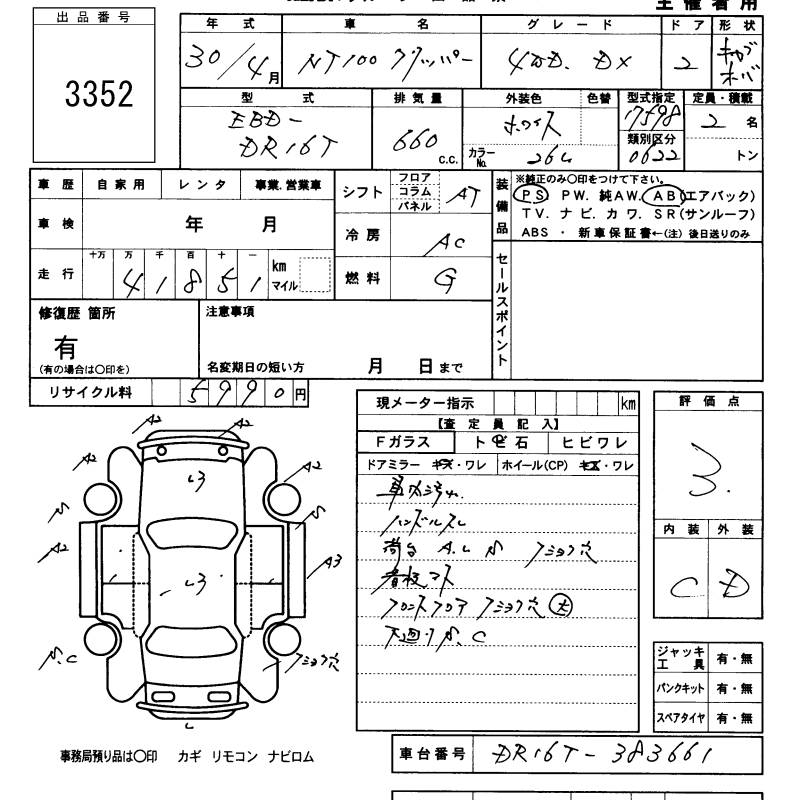 主催者用
出品番号
3352
年式 車名 グレード ドア 形状
30/4月 NT100 クリッパー 4WD. DX 2 キャブオーバ
型式 排気量 外装色 色替 型式指定 定員・積載
EBD-DR16T 660 c.c. ホワイト 17598 2名
カラーNo. 26U 類別区分 0622 トン
車歴 自家用 レンタ 事業.営業車
シフト フロア コラム パネル AT
車検 年 月
冷房 AC
走行 十万 万 千 百 十 一 km マイル
4 1 8 5 1
燃料 G
装備品 ※純正のみ〇印をつけて下さい。
PS PW. 純AW. AB(エアバック)
TV. ナビ. カワ. SR(サンルーフ)
ABS ・ 新車保証書←(注) 後日送りのみ
セールスポイント
修復歴 箇所 注意事項
有
(有の場合は〇印を) 名変期日の短い方 月 日まで
リサイクル料 5990円
現メーター指示 km
【査定員記入】
Fガラス トビ石 ヒビワレ
ドアミラー キズ・ワレ ホイール(CP) キズ・ワレ
車内汚れ
ハンドルスレ
荷台 A.U S フショク穴
看板マド
フロントフロア フショク穴 大
下廻り S.C
評価点
3.
内装 外装
C D
A2 A2
A2 A2
S S
A2 A3
S.C フショク穴
ジャッキ工具 有・無
パンクキット 有・無
スペアタイヤ 有・無
事務局預り品は〇印 カギ リモコン ナビロム
車台番号 DR16T-383661